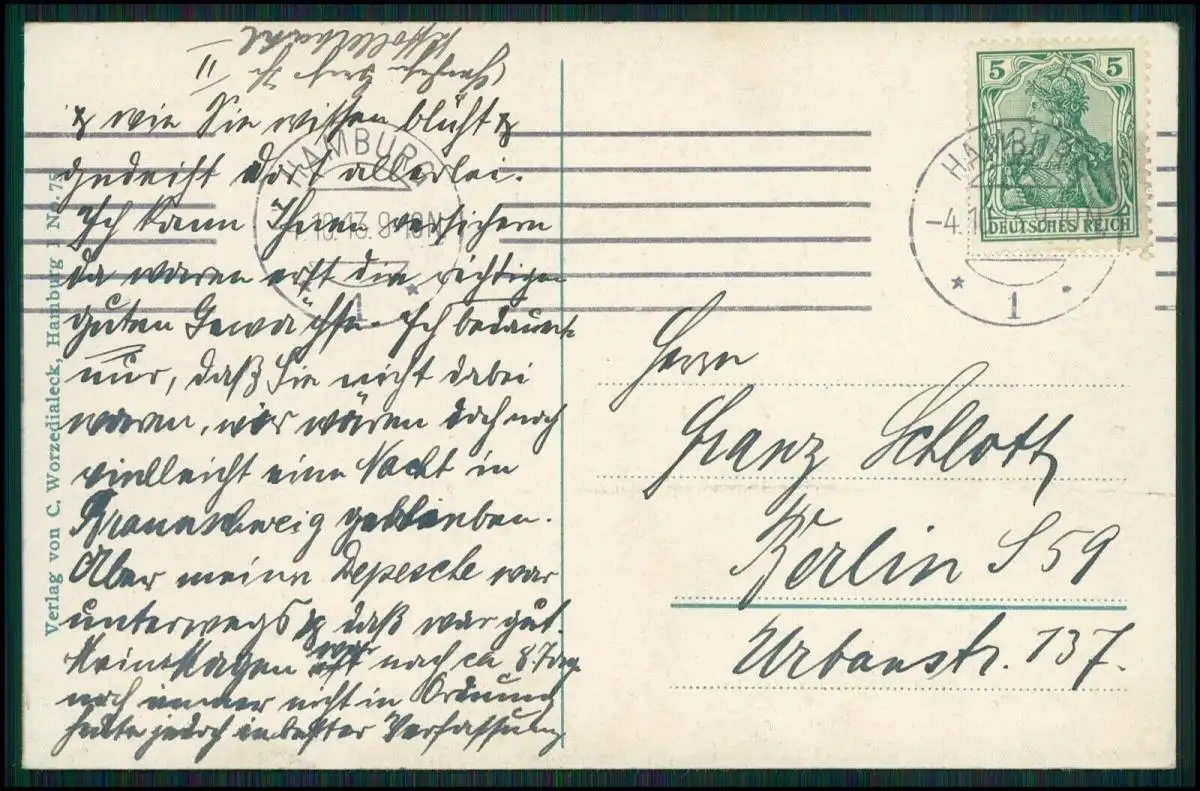 & wie Sie wissen blüht &
gedeiht dort allerlei.
Ich kann Ihnen versichern
da waren erst die richtigen
guten Gewächse. Ich bedaure
nur, daß Sie nicht dabei
waren, wir wären doch noch
vielleicht eine Nacht in
Braunschweig geblieben.
Aber meine Depesche war
unterwegs & daß war gut.
Mein Magen war nach ca 8 Tag
noch immer nicht in Ordnung
heute jedoch in bester Verfassung
Verlag von C. Worzedialeck, Hamburg 1 No. 75
HAMBURG
10.13. 9-10N
1
5 5
DEUTSCHES REICH
HAMBURG
-4.10. 9-10N
1
Herrn
Franz Schlott
Berlin S 59
Urbanstr. 137.